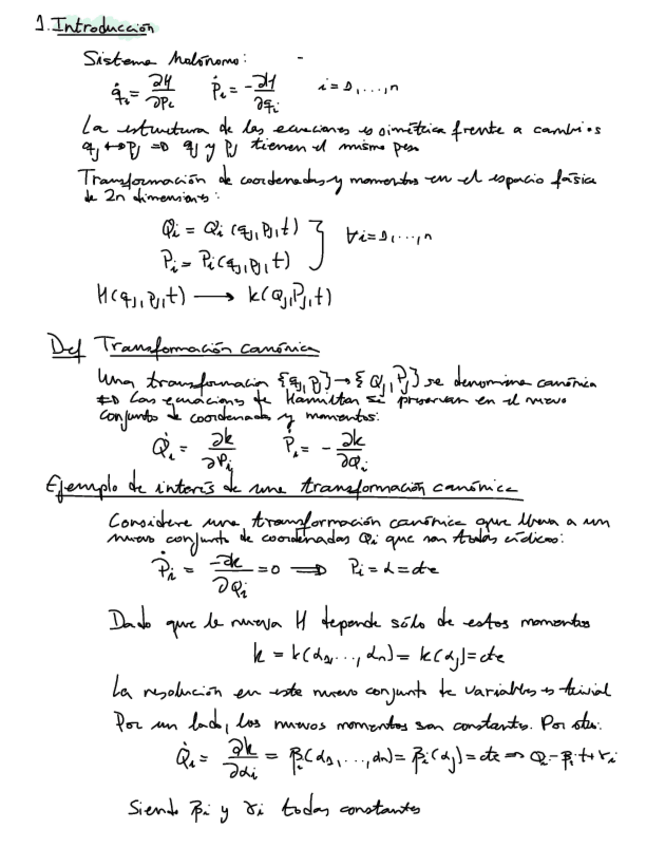 1. Introducción
Sistema Holónomo:
q̇ᵢ = ∂H/∂pᵢ ṗᵢ = -∂H/∂qᵢ i=1,...,n
La estructura de las ecuaciones es simétrica frente a cambios
qⱼ ↔ pⱼ ⇒ qⱼ y pⱼ tienen el mismo peso
Transformación de coordenadas y momentos en el espacio fásico
de 2n dimensiones:
Qᵢ = Qᵢ (qⱼ, pⱼ, t) } ∀i=1,...,n
Pᵢ = Pᵢ (qⱼ, pⱼ, t)
H(qⱼ, pⱼ, t) → k(Qⱼ, Pⱼ, t)
Def Transformación canónica
Una transformación {qⱼ, pⱼ} → {Qⱼ, Pⱼ} se denomina canónica
⇔ Las ecuaciones de Hamilton se preservan en el nuevo
conjunto de coordenadas y momentos:
Q̇ᵢ = ∂k/∂Pᵢ Ṗᵢ = -∂k/∂Qᵢ
Ejemplo de interés de una transformación canónica
Considere una transformación canónica que lleva a un
nuevo conjunto de coordenadas Qi que son todas cíclicas:
Ṗᵢ = -∂k/∂Qᵢ = 0 ⇒ Pᵢ = α = cte
Dado que la nueva H depende sólo de estos momentos
k = k(α₁, ..., αn) = k(αⱼ) = cte
La resolución en este nuevo conjunto de variables es trivial
Por un lado, los nuevos momentos son constantes. Por otro:
Q̇ᵢ = ∂k/∂αᵢ = βᵢ(α₁, ..., αn) = βᵢ(αⱼ) = cte ⇒ Qᵢ = βᵢt + γᵢ
Siendo βi y γi todas constantes